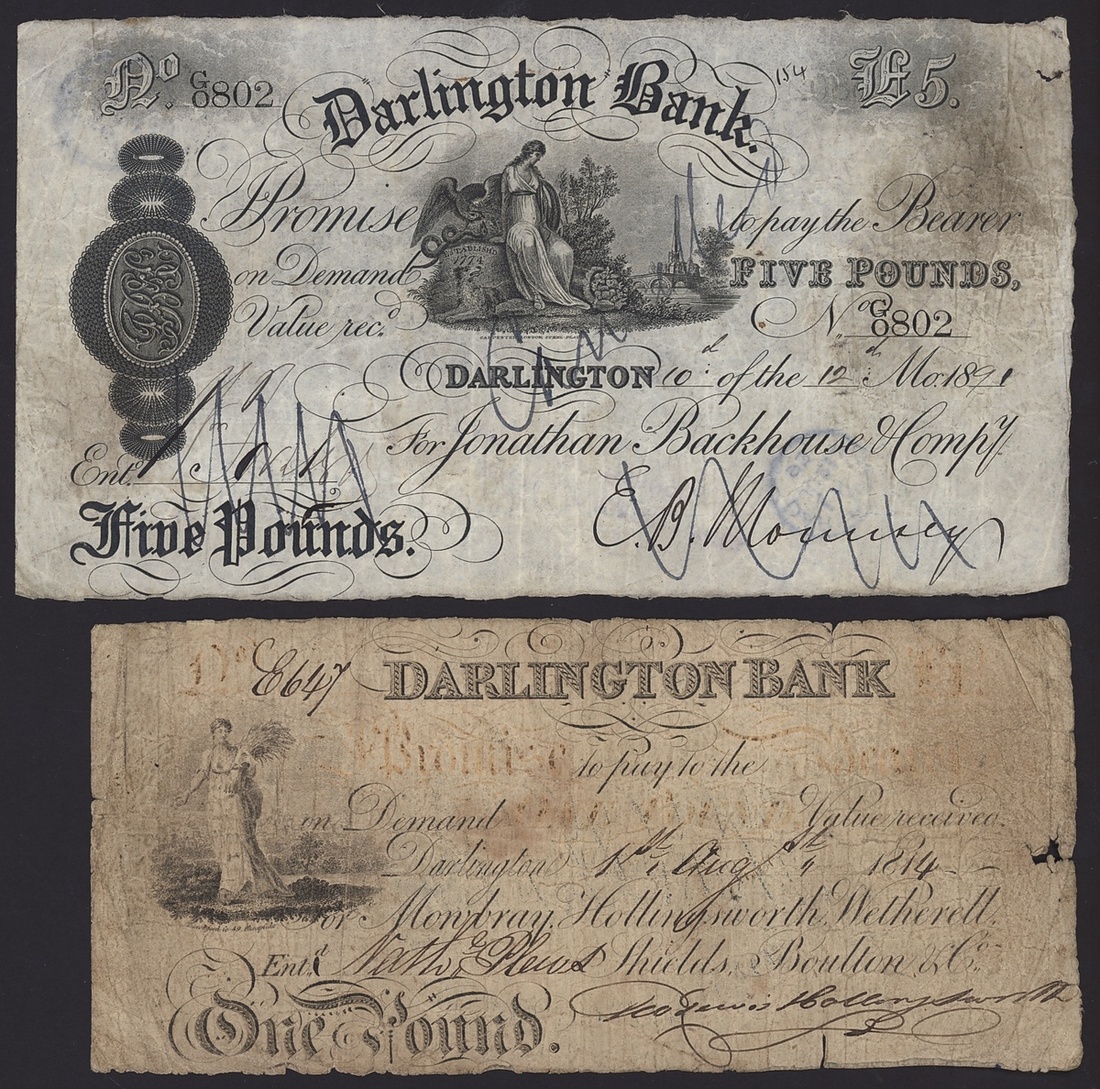 No. G/0802
Darlington Bank.
154
£5.
Promise to pay the Bearer
on Demand FIVE POUNDS,
ESTABLISHED 1774
Value rec.d No. G/0802
DARLINGTON 10d of the 12d Mo. 1891
For Jonathan Backhouse & Compy.
Ent.d
Five Pounds.
E. B. Mounsey
No. E647 DARLINGTON BANK
I Promise to pay to the
on Demand Value received.
Darlington 1st Augst 1814
For Mowbray, Hollingsworth, Wetherell,
Ent.d Shields, Boulton & Co.
One Pound.
Hollingsworth